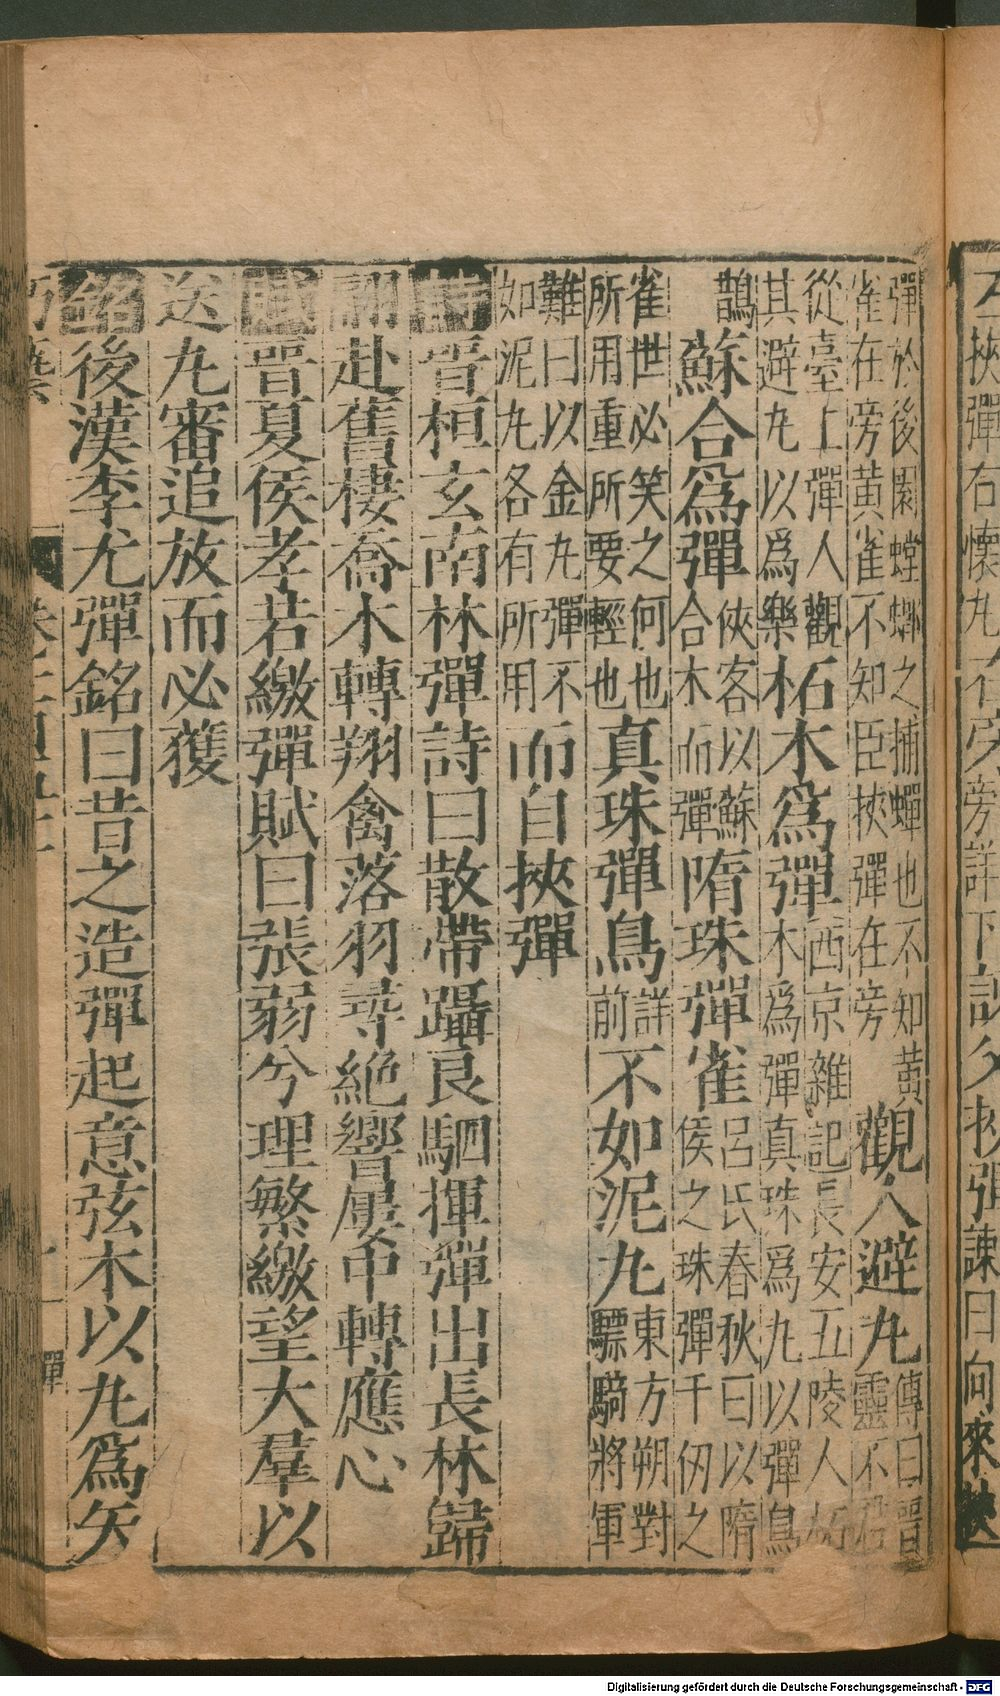 挾彈右懷丸
彈於後園螳螂之捕蟬也不知黃
雀在旁黃雀不知臣挾彈在旁
觀人避丸
傳曰晉
靈不君
從臺上彈人觀
其避丸以爲樂
柘木爲彈
西京雜記長安五陵人柘
木爲彈真珠爲丸以彈鳥
鵲
蘇合爲彈
俠客以蘇
合木而彈
隋珠彈雀
呂氏春秋曰以隋
侯之珠彈千仞之
雀世必笑之何也
所用重所要輕也
真珠彈鳥
詳
前
不如泥丸
東方朔對
驃騎將軍
難曰以金丸彈不
如泥丸各有所用
而自挾彈
詩晉桓玄南林彈詩曰散帶躡良駟揮彈出長林歸
翮赴舊棲喬木轉翔禽落羽尋絕響屢中轉應心
賦晉夏侯孝若繳彈賦曰張弱兮理繁繳望大羣以
送丸審追放而必獲
銘後漢李尤彈銘曰昔之造彈起意弦木以丸爲矢
彈
Digitalisierung gefördert durch die Deutsche Forschungsgemeinschaft - DFG